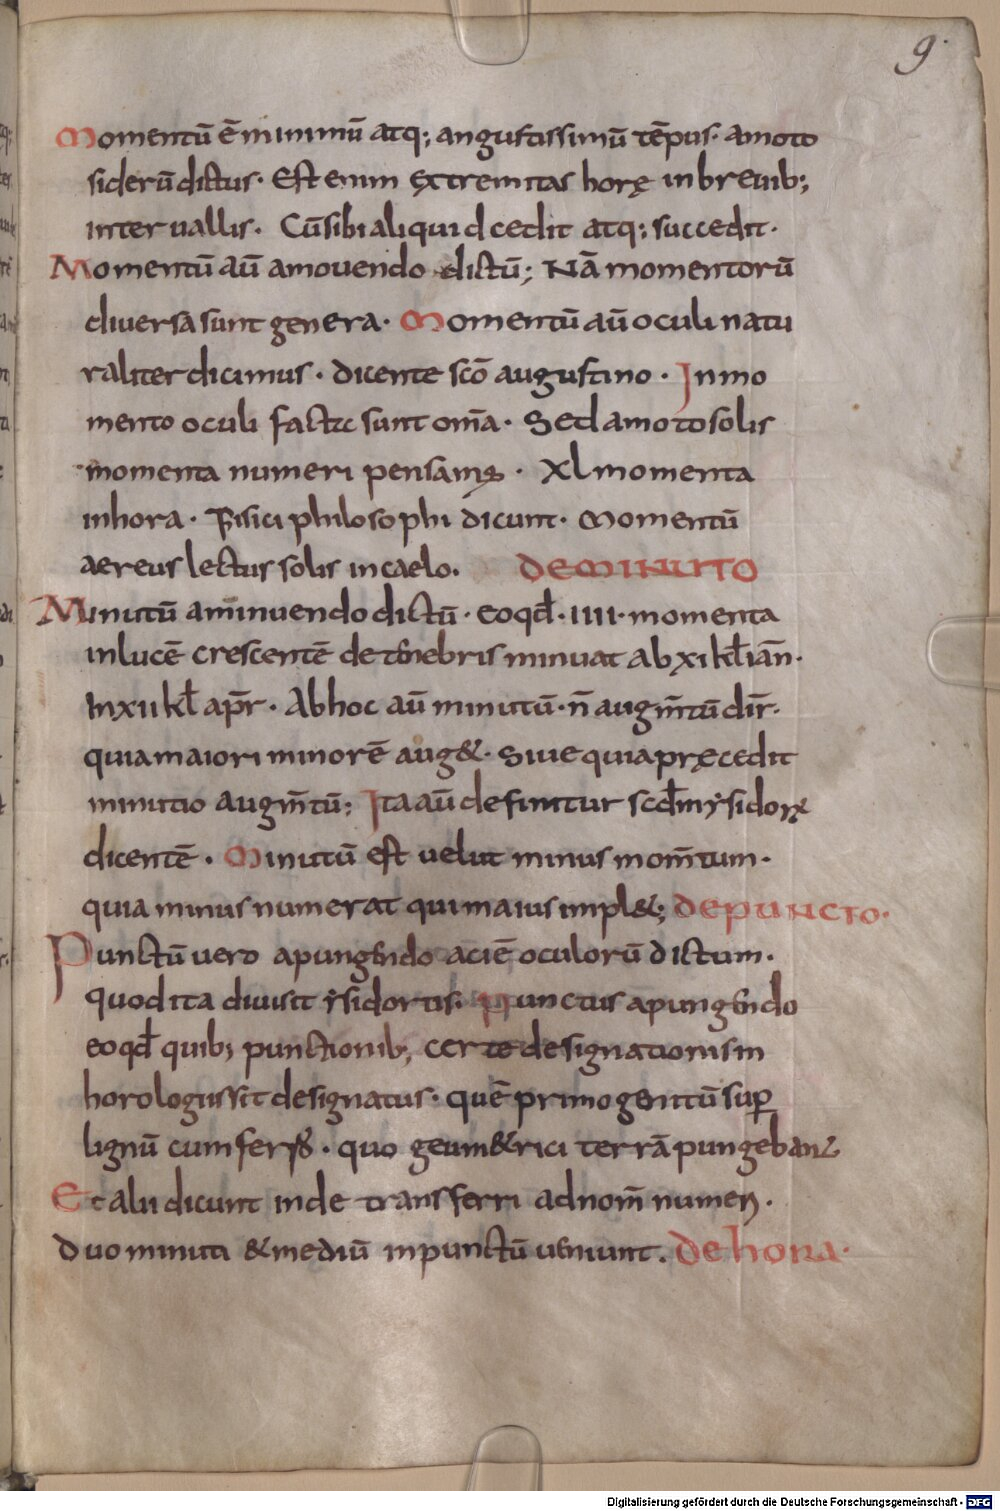 9.
Momentū ē minimū atq; angustissimū tēpus. amoto
siderū dictus. Est enim extremitas horę in breuib;
interuallis. Cū sibi aliquid cedit atq; succedit.
Momentū aū amouendo dictū; Nā momentorū
diuersa sunt genera. Momentū aū oculi natu
raliter dicimus. dicente scō augustino. In mo
mento oculi facta sunt om̄a. Sed a moto solis
momenta numeri pensam. XL momenta
in hora. Fisici philosophi dicunt. Momentū
aereus lectus solis in caelo. DE MINUTO
Minutū a minuendo dictū. eo qđ. IIII. momenta
in lucē crescentē de tenebris minuat ab xi kł iāń.
In xii kł ap̄r. Ab hoc aū minutū. n̄ augm̄tū dir̄.
quia maiori minorē aug&. Siue quia pręcedit
minutio augm̄tū; Ita aū definitur scđm ysidorę
dicentē. Minutū est uelut minus mom̄tum.
quia minus numerat qui maius impl&; DE PUNCTO.
Punctū uero a pungendo aciē oculorū dictum.
quod ita diuisit ysidorus. Punctus a pungendo
eo qđ quib; punctionib; certe designationis in
horologiis sit designatus. quē primo gentū sup
lignū cum ferro. quo geum&rici terrā pungebant
Et alii dicunt inde transferri ad nom̄ numeri.
Duo minuti & mediū in punctū ueniunt. DE hORA.
Digitalisierung gefördert durch die Deutsche Forschungsgemeinschaft - DFG